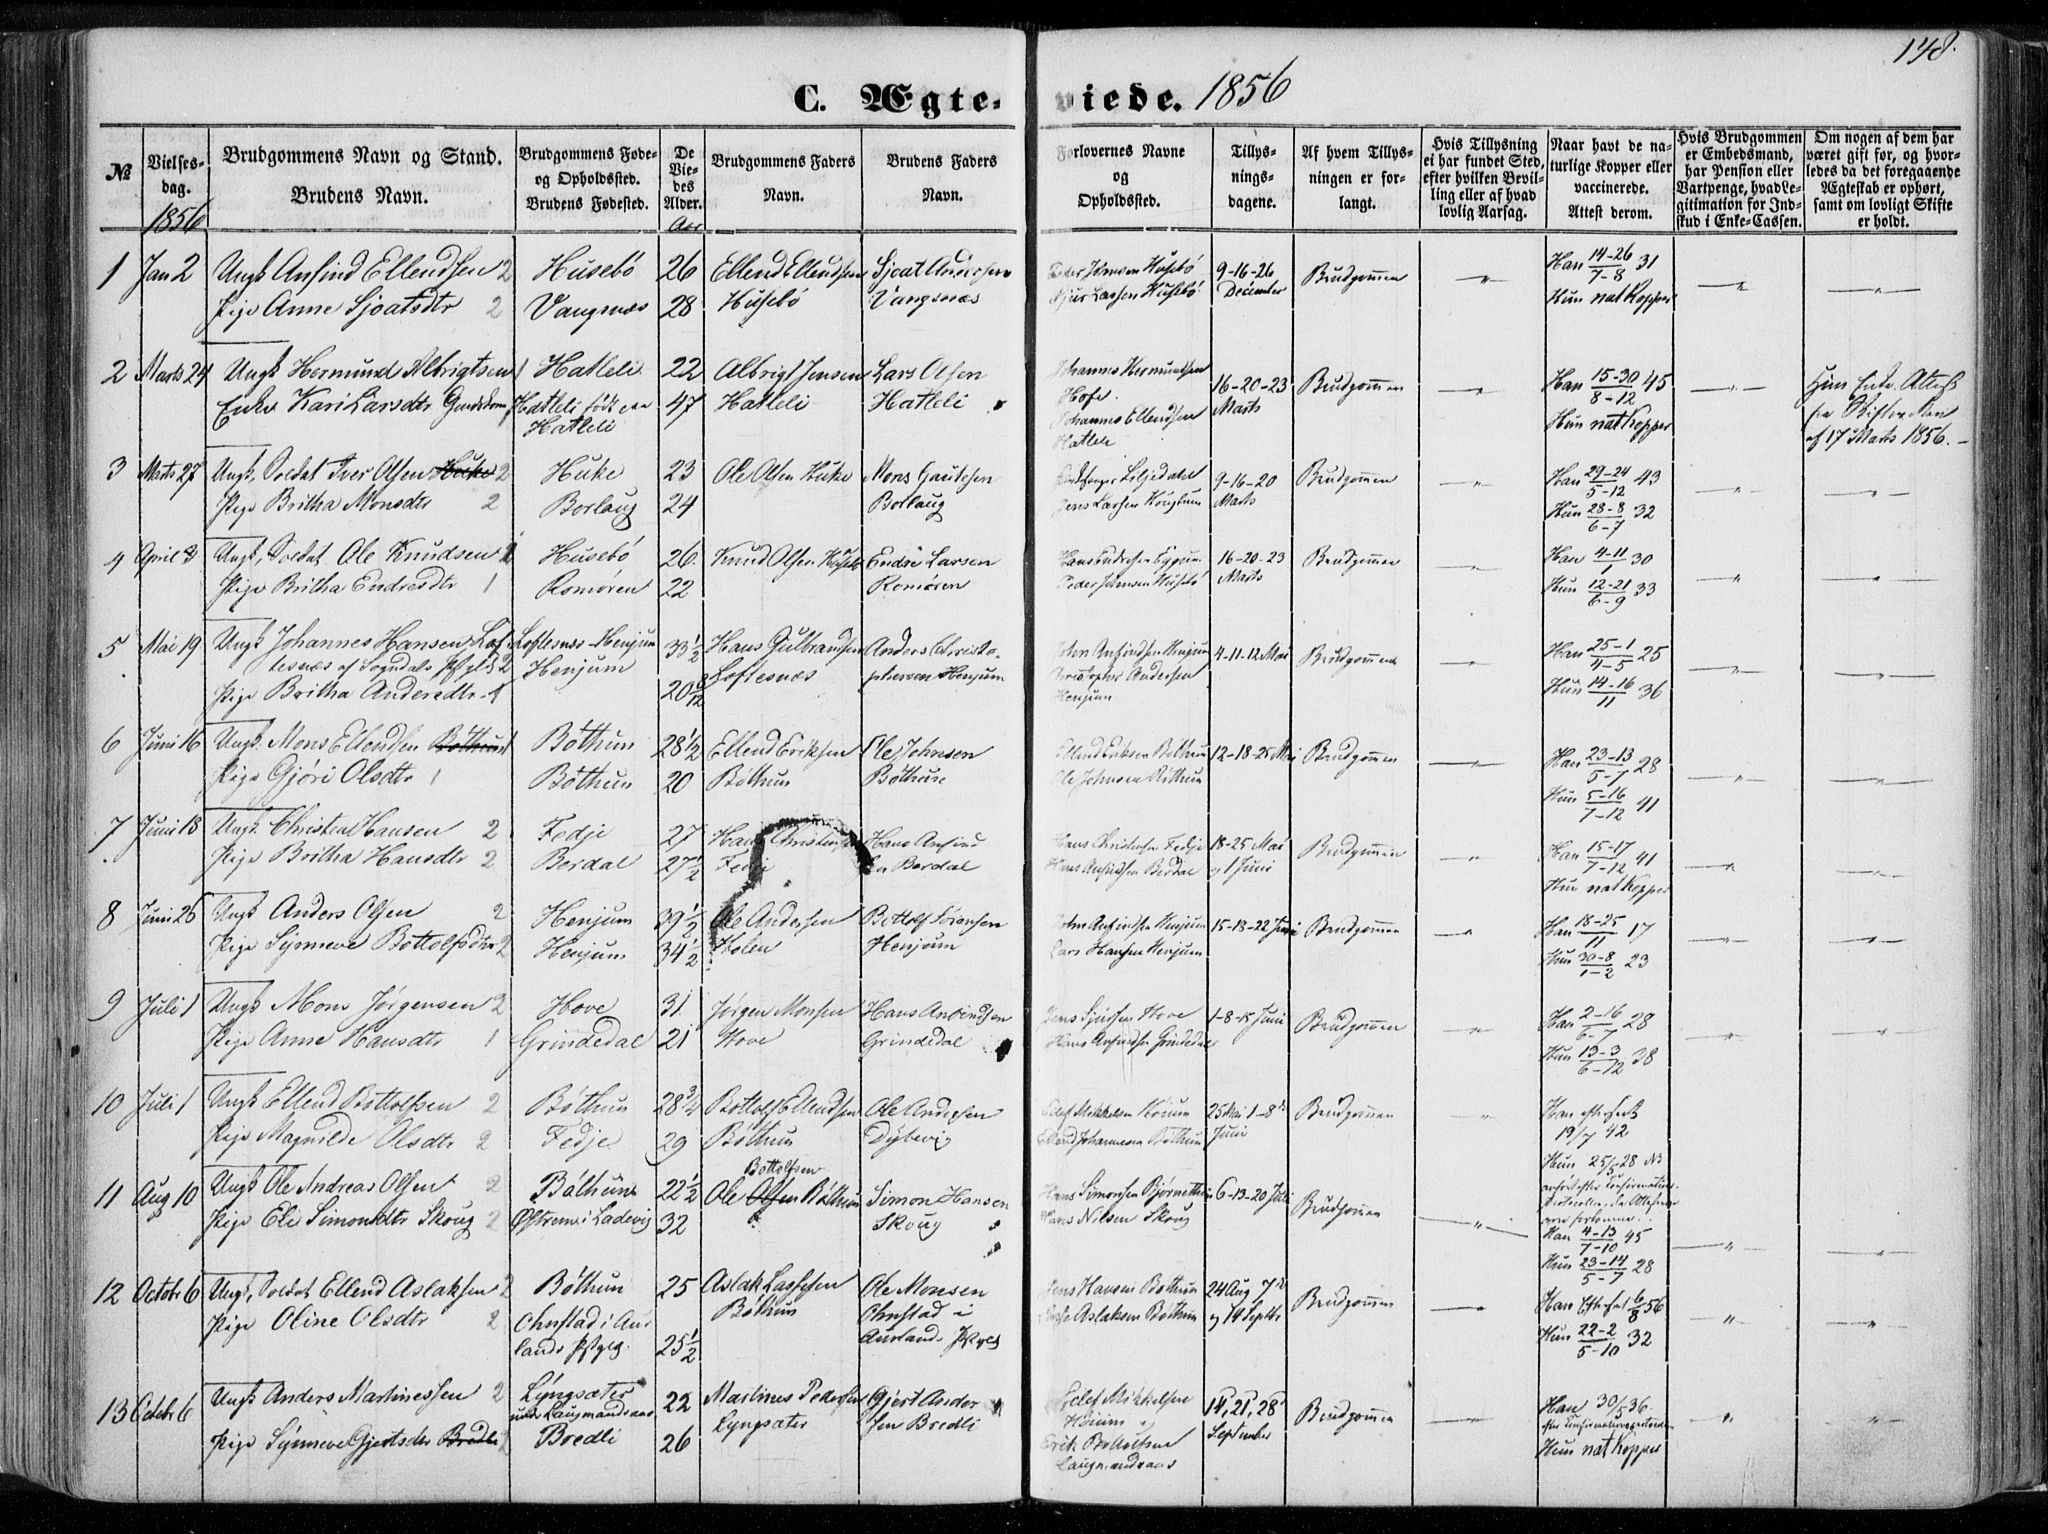 148.
C. Ægte- viede. 1856
№
Vielses-
dag.
1856
Brudgommens Navn og Stand.
Brudens Navn.
Brudgommens Føde-
og Opholdssted.
Brudens Fødested.
De
Vie-
des
Alder.
Aar
Brudgommens Faders
Navn.
Brudens Faders
Navn.
Forlovernes Navne
og
Opholdssted.
Tillys-
nings-
dagene.
Af hvem Tillys-
ningen er for-
langt.
Hvis Tillysning
ei har fundet Sted,
efter hvilken Bevil-
ling eller af hvad
lovlig Aarsag.
Naar havt de na-
turlige Kopper eller
vaccinerede.
Attest derom.
Hvis Brudgommen
er Embedsmand,
har Pension eller
Vartpenge, hvad Le-
gitimation for Ind-
skud i Enke-Cassen.
Om nogen af dem har
været gift før, og hvor-
ledes da det foregaaende
Ægteskab er ophørt,
samt om lovligt Skifte
er holdt.
1 Jan 2 Ungk Anfind Ellendsen 2 Husebö 26 Ellend Ellendsen Sjoat Andersen Peder Johnsen Husebö 9-16-26 Brudgommen " Han 14-26/7-8 31 " "
Pige Anne Sjoatsdtr 2 Vangsnæs 28 Husebö Vangsnæs Sjur Larsen Husebö December Hun nat Kopper
2 Marts 24 Ungk Hermund Albrigtsen 1 Hatleli 22 Albrigt Jensen Lars Olsen Johannes Hermundsen 16-20-23 Brudgommen " Han 15-30/8-12 45 " Hun Enke. Attest
Enke Kari Larsdtr Hatleli født paa 47 Hatleli Hatleli Hofe. Marts Hun nat Kopper fra Skifteretten
Hatleli Johannes Ellendsen af 17 Marts 1856.
Hatleli
3 Marts 27 Ungk, Soldat Iver Olsen Huke 2 Huke 23 Ole Olsen Huke Mons Gautesen Liljedahl 9-16-20 Brudgommen " Han 29-24/5-12 43 " "
Pige Britha Monsdtr 2 Borlaug 24 Borlaug Jens Larsen Marts Hun 28-8/6-7 32
4 April 3 Ungk, Soldat Ole Knudsen Husebö 26 Knud Olsen Husebö Endre Larsen 16-20-23 Brudgommen " Han 4-11/1 30 " "
Pige Britha Endresdtr 1 Romören 22 Romören Peder Johnsen Husebö Marts Hun 12-21/6-9 33
5 Mai 19 Ungk Johannes Hansen Lof- Loftesnæs-Henjum 33½ Hans Gulbrandsen Anders Christo- John Anfindsen Henjum 4-11-12 Mai Brudgommen " Han 25-1/4-5 25 " "
tesnæs af Sogndals Pstgld 2 Henjum Loftesnæs phersen Henjum Christopher Andersen Hun 14-16/11 36
Pige Britha Andersdtr 1 20 Henjum
6 Juni 16 Ungk. Mons Ellendsen Böthun Böthun 28½ Ellend Eriksen Ole Johnsen Ellend Eriksen Böthun 12-18-25 Mai Brudgommen " Han 23-13/5-7 28 " "
Pige Gjöri Olsdtr 1 Böthun 20 Böthun Böthun Ole Johnsen Böthun Hun 5-16/7-12 41
7 Juni 18 Ungk. Christen Hansen 2 Fedje 27 Hans Christensen Hans Anfind Hans Christensen Fedje 18-25 Mai Brudgommen " Han 15-17/7-12 41 " "
Pige Britha Hansdtr 2 Berdal 27½ Fedje sen Berdal Hans Anfindsen Berdal og 1 Juni Hun nat Kopper
8 Juni 26 Ungk Anders Olsen 2 Henjum 39½ Ole Andersen Bottolf Sörensen John Anfindsen Henjum 15-18-22 Juni Brudgommen " Han 18-25/11 17 " "
Pige Synneve Bottolfsdtr 2 Henjum 34½ Holen Henjum Lars Hansen Henjum Hun 30-8/1-2 23
9 Juli 1 Ungk Mons Jörgensen 2 Hove 31 Jörgen Monsen Hans Anfindsen Jens Sjursen Hove 1-8-15 Juni Brudgommen " Han 2-16/6-7 28 " "
Pige Anne Hansdtr 1 Grindedal 21 Hove Grindedal Hans Anfindsen Grindedal Hun 13-3/6-12 38
10 Juli 1 Ungk Ellend Bottolfsen 2 Böthun 28¾ Bottolf Ellendsen Ole Andersen Mikkelsen 25 Mai 1-8de Brudgommen " Han efterseet
Pige Magnilde Olsdtr 2 Fedje 29 Böthun Dybevig Ellend Johannesen Böthun Juni 19/7 42
Hun 25/5 28 NB
anført efter Confirmations
Protocollen, da Attesten
er forkommen.
11 Aug 10 Ungk Ole Andreas Olsen 2 Böthun 22½ Ole Olsen Bottolfsen Böthun Simon Hansen Hans Simonsen 6-13-20 Juli Brudgommen " Han 4-13/7-10 45 " "
Pige Eli Simonsdtr Skoug 2 i Ladevig 32 Skoug Hans Nilsen Skoug Hun 23-14/5-7 28
12 Octobr 6 Ungk, Soldat Ellend Aslaksen 2 Böthun 25 Aslak Lassesen Ole Monsen Jens Hansen Böthun 24 Aug 7de Brudgommen " Han Efterset 6/8 56 " "
Pige Oline Olsdtr 2 Ohnstad i Aur Böthun Ohnstad i Lasse Aslaksen Böthun og 14 Septbr Hun 22-2/5-10 32
lands Pstgld. 25½ Aurlands Pstgld
13 Octobr 6 Ungk Anders Martinessen 2 Lyngsæter 22 Martines Pedersen Gjert Ander Mikkelsen 14, 21, 28 Brudgommen " Han 30/5 36. " "
under Laugmandraas Lyngsæter sen Bredli September
Pige Synneve Gjertsdtr Bredli Bredli 26 Erik Bottolfsen Hun nat Kopper
Laugmandraas